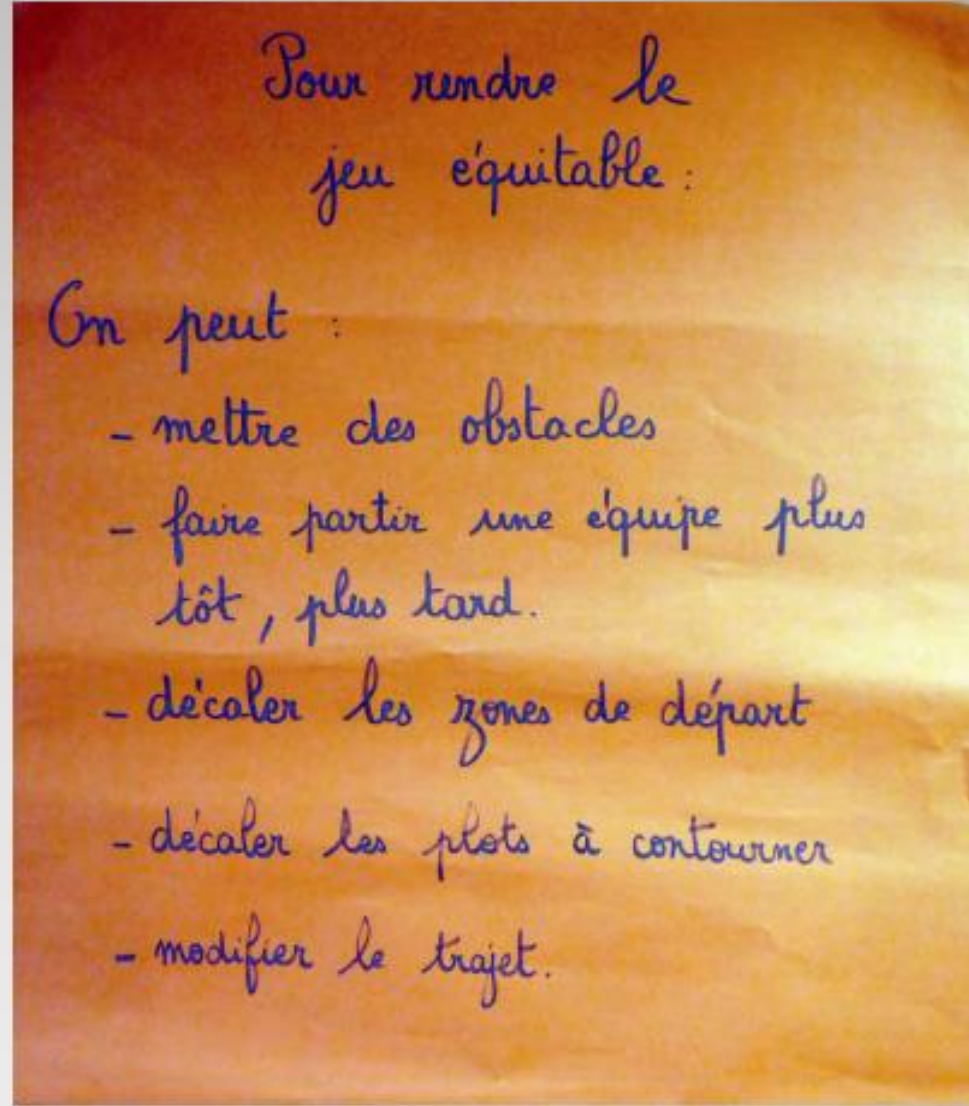 Pour rendre le
jeu équitable :
On peut :
- mettre des obstacles
- faire partir une équipe plus
tôt, plus tard.
- décaler les zones de départ
- décaler les plots à contourner
- modifier le trajet.